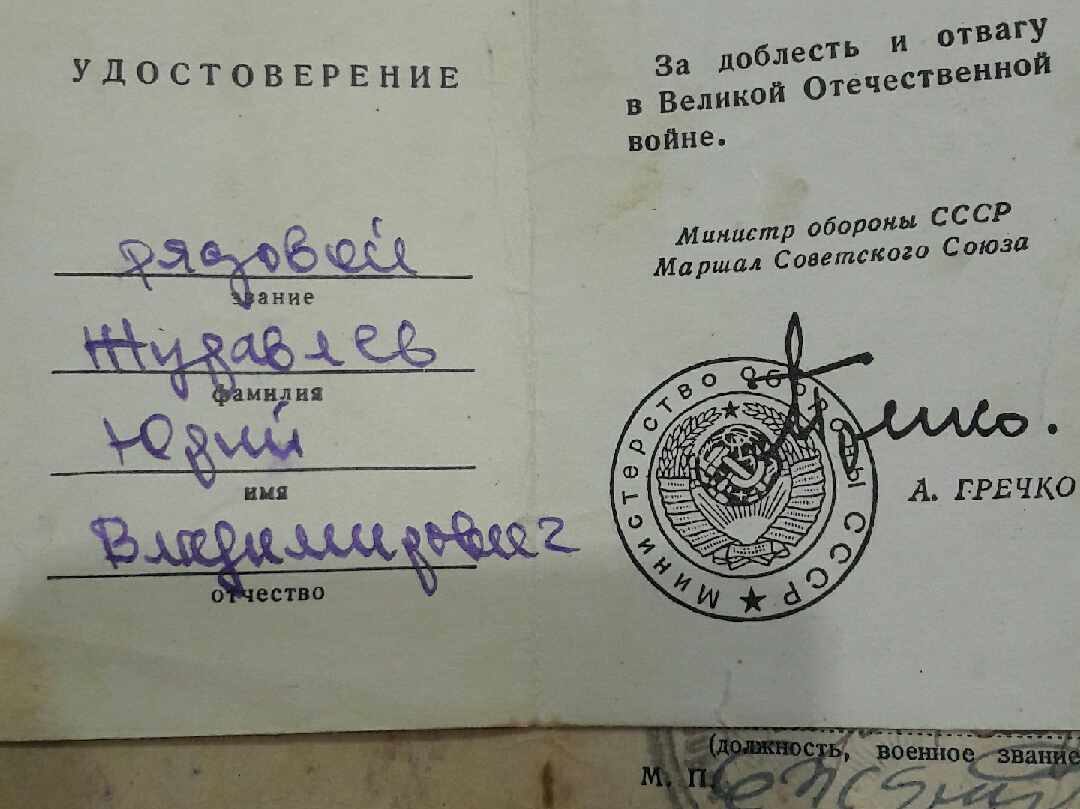 УДОСТОВЕРЕНИЕ
рядовой
звание
Журавлев
фамилия
Юрий
имя
Владимирович
отчество
За доблесть и отвагу
в Великой Отечественной
войне.
Министр обороны СССР
Маршал Советского Союза
Министерство Обороны СССР
А. ГРЕЧКО
(должность, военное звание
М. П.